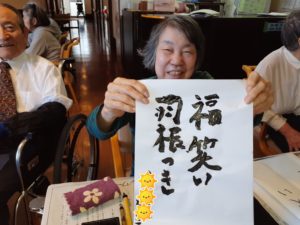 福笑い
羽根つき